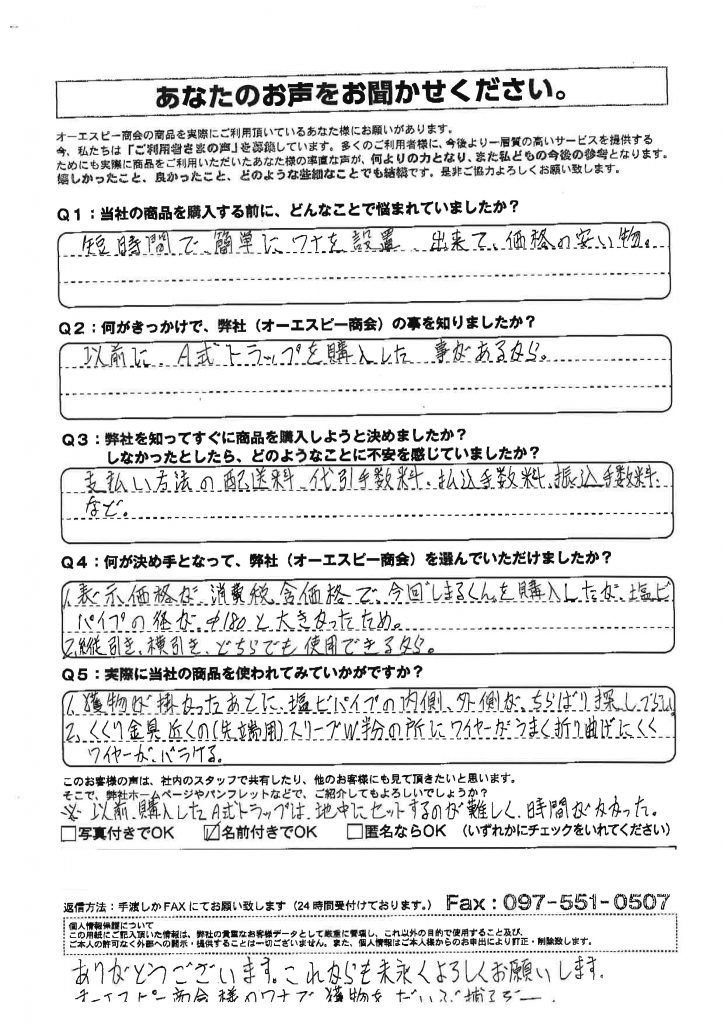 あなたのお声をお聞かせください。
オーエスピー商会の商品を実際にご利用頂いているあなた様にお願いがあります。
今、私たちは「ご利用者さまの声」を募集しています。多くのご利用者様に、今後より一層質の高いサービスを提供する
ためにも実際に商品をご利用いただいたあなた様の率直な声が、何よりの力となり、また私どもの今後の参考となります。
嬉しかったこと、良かったこと、どのような些細なことでも結構です。是非ご協力よろしくお願い致します。
Q1：当社の商品を購入する前に、どんなことで悩まれていましたか？
短時間で、簡単にワナを設置、出来て、価格の安い物。
Q2：何がきっかけで、弊社（オーエスピー商会）の事を知りましたか？
以前に、A式トラップを購入した事があるから。
Q3：弊社を知ってすぐに商品を購入しようと決めましたか？
しなかったとしたら、どのようなことに不安を感じていましたか？
支払い方法の配送料、代引手数料、払込手数料、振込手数料、
など。
Q4：何が決め手となって、弊社（オーエスピー商会）を選んでいただけましたか？
1,表示価格が、消費税、含価格で、今回「しまるくん」を購入したが、塩ビ
パイプの径が、φ180と大きかったため。
2,縦引き、横引き、どちらでも使用できるから。
Q5：実際に当社の商品を使われてみていかがですか？
1,獲物が掛かったあとに、塩ビパイプの内側、外側が、ちらばり探しづらい。
2,くくり金具近くの(先端用)スリーブW半分の所にワイヤーがうまく折り曲げにくく
ワイヤーが、バラける。
このお客様の声は、社内のスタッフで共有したり、他のお客様にも見て頂きたいと思います。
そこで、弊社ホームページやパンフレットなどで、ご紹介してもよろしいでしょうか？
※以前、購入したA式トラップは、地中にセットするのが難しく、時間がかかった。
□写真付きでOK ☑名前付きでOK □匿名ならOK （いずれかにチェックをいれてください）
返信方法：手渡しかFAXにてお願い致します（24時間受付ております。） Fax：097-551-0507
個人情報保護について
この用紙にご記入頂いた情報は、弊社の貴重なお客様データとして厳重に管理し、これ以外の目的で使用すること及び、
ご本人の許可なく外部への開示・提供することは一切ございません。また、個人情報はご本人様からのお申出により訂正・削除致します。
ありがとうございます。これからも末永くよろしくお願いします。
オーエスピー商会様のワナで獲物を